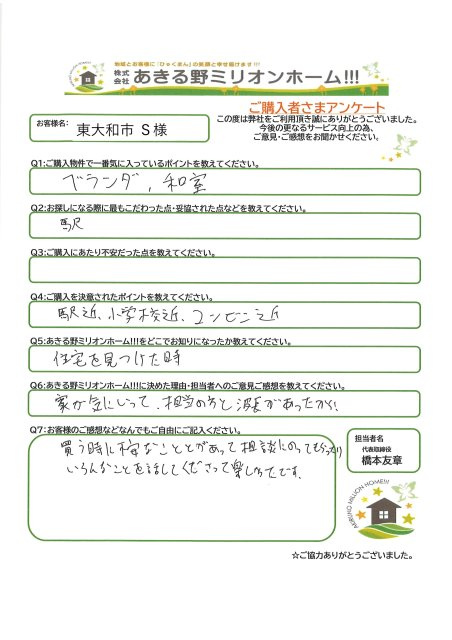 地域とお客様に「ひゃくまん」の笑顔と幸せ届けます!!!
株式会社 あきる野ミリオンホーム!!!
ご購入者さまアンケート
この度は弊社をご利用頂き誠にありがとうございました。
今後の更なるサービス向上の為、
ご意見・ご感想をお聞かせください。
お客様名: 東大和市 S 様
Q1:ご購入物件で一番気に入っているポイントを教えてください。
ベランダ、和室
Q2:お探しになる際に最もこだわった点・妥協された点などを教えてください。
駅
Q3:ご購入にあたり不安だった点を教えてください。
Q4:ご購入を決意されたポイントを教えてください。
駅近、小学校近、コンビニ近
Q5:あきる野ミリオンホーム!!!をどこでお知りになったか教えてください。
住宅を見つけた時
Q6:あきる野ミリオンホーム!!!に決めた理由・担当者へのご意見ご感想を教えてください。
家が気にいって、担当の方と波長があったから!
Q7:お客様のご感想などなんでもご自由にご記入ください。
買う時に不安なこととかあって相談にのってもらったり
いろんなことを話してくださって楽しかったです。
担当者名
代表取締役
橋本友章
AKIRUNO MILLION HOME!!!
☆ご協力ありがとうございました。